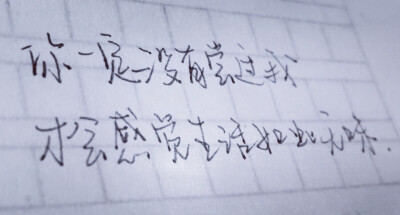 你一定没有尝过我
才会感觉生活如此无味.